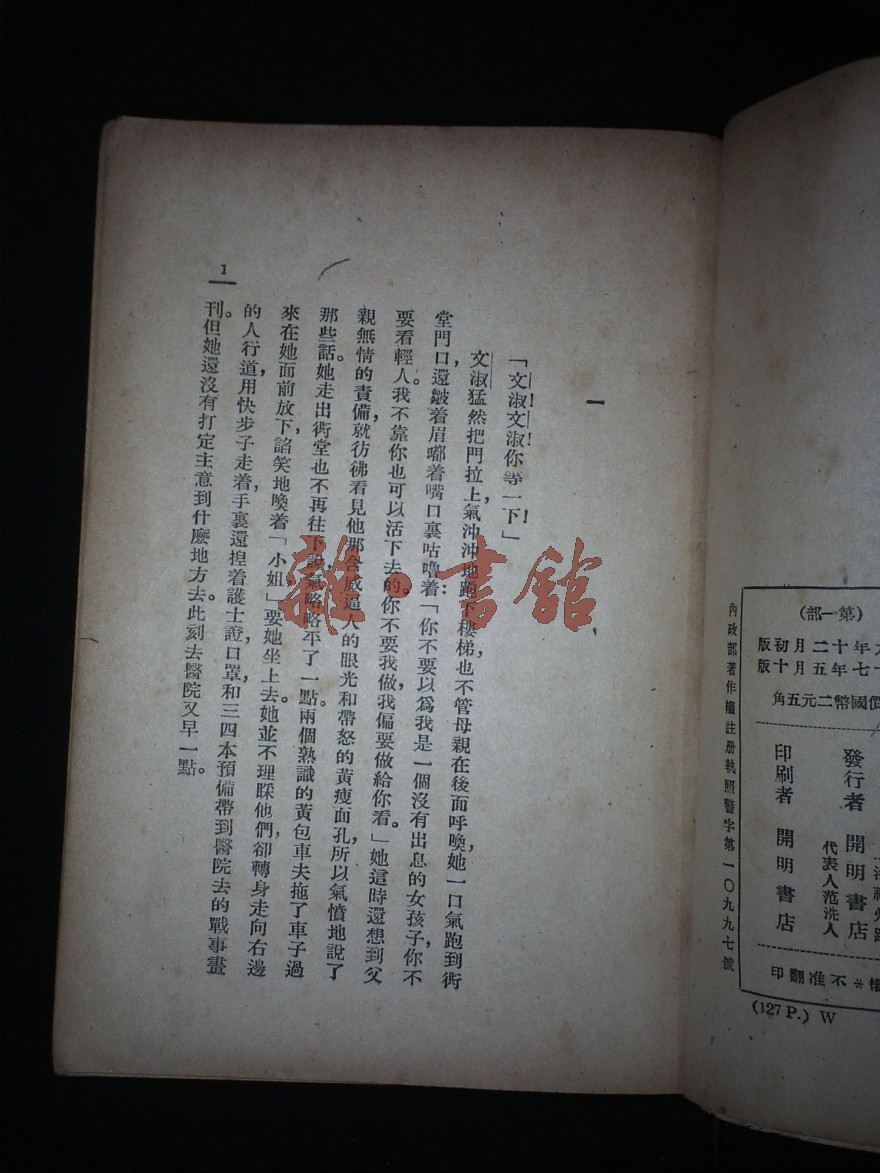 （第一部）
年十二月初版
七年五月十版
國幣二元五角
發行者　開明書店
代表人范洗人
印刷者　開明書店
＊不准翻印
內政部著作權註册執照警字第一〇九九七號
(127 P.) W
一
「文淑！文淑！你等一下！」
文淑猛然把門拉上，氣沖沖地跑下樓梯，也不管母親在後面呼喚，她一口氣跑到衖
堂門口，還皺着眉嘟着嘴口裏咕嚕着：「你不要以爲我是一個沒有出息的女孩子，你不
要看輕人。我不靠你也可以活下去的。你不要我做，我偏要做給你看。」她這時還想到父
親無情的責備，就彷彿看見他那含威逼人的眼光和帶怒的黃瘦面孔，所以氣憤地說了
那些話。她走出衖堂也不再往下說，氣略略平了一點。兩個熟識的黃包車夫拖了車子過
來在她面前放下，諂笑地喚着「小姐」，要她坐上去。她並不理睬他們，卻轉身走向右邊
的人行道，用快步子走着，手裏還揑着護士證，口罩，和三四本預備帶到醫院去的戰事畫
刊。但她還沒有打定主意到什麼地方去。此刻去醫院又早一點。
1
雜·書館